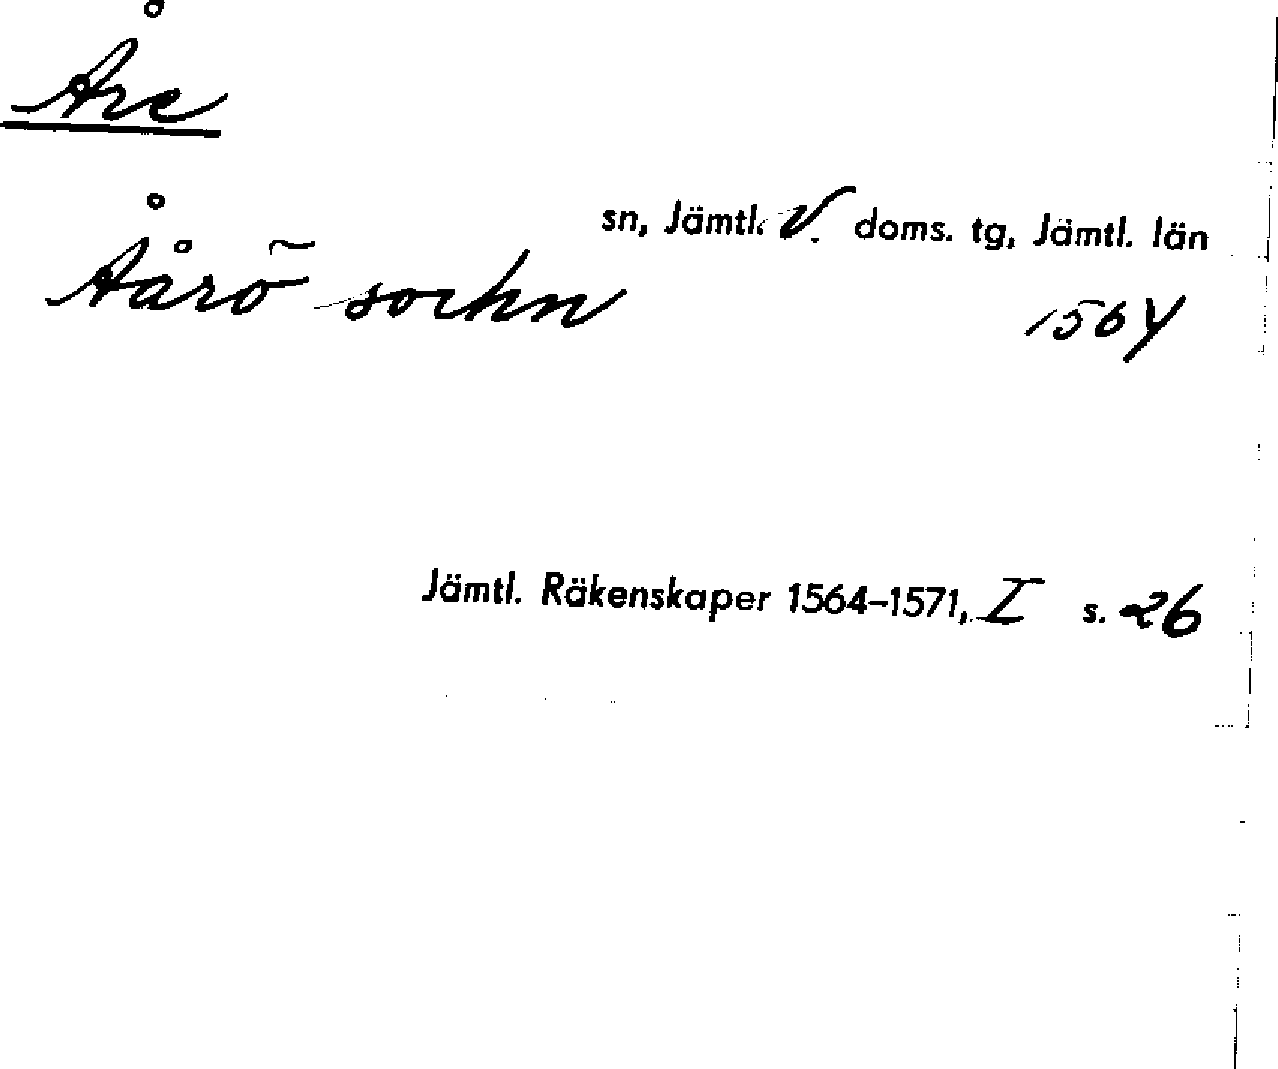 Åre
sn, Jämtl. V. doms. tg, Jämtl. län
Åårö sochn 1564
Jämtl. Räkenskaper 1564–1571, I s. 26